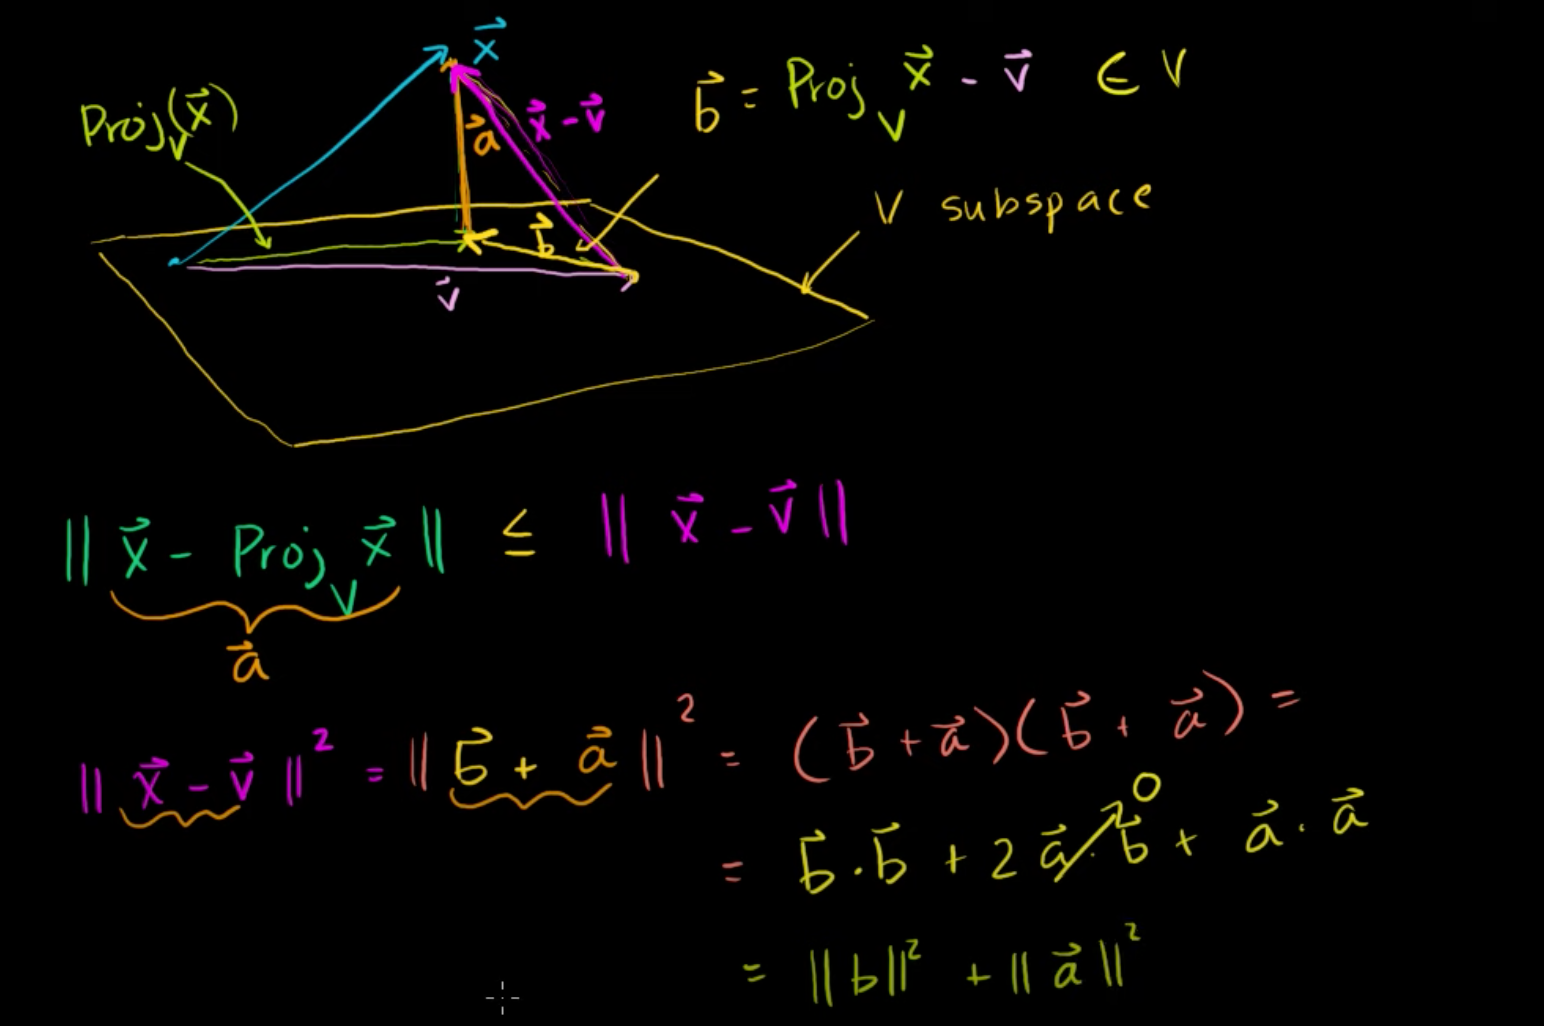 x⃗
Proj_V(x⃗)
a⃗
x⃗ - v⃗
b⃗
v⃗
b⃗ = Proj_V x⃗ - v⃗ ∈ V
V subspace
‖ x⃗ - Proj_V x⃗ ‖ ≤ ‖ x⃗ - v⃗ ‖
a⃗
‖ x⃗ - v⃗ ‖² = ‖ b⃗ + a⃗ ‖² = (b⃗ + a⃗)(b⃗ + a⃗) =
0
= b⃗ · b⃗ + 2 a⃗ · b⃗ + a⃗ · a⃗
= ‖b‖² + ‖ a⃗ ‖²